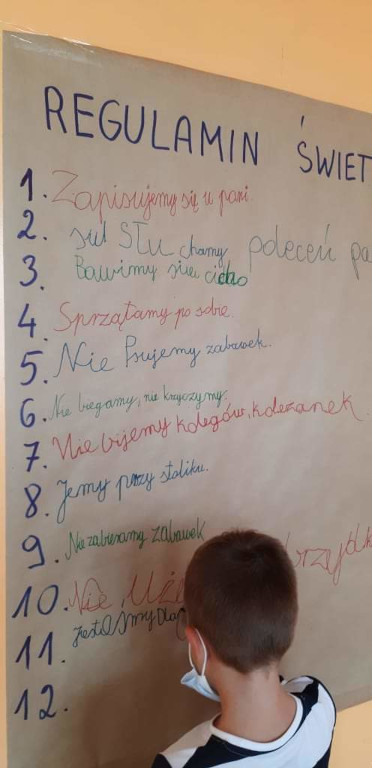 REGULAMIN ŚWIET
1. Zapisujemy się u pani.
2. słuchamy poleceń pa
3. Bawimy się cicho
4. Sprzątamy po sobie.
5. Nie Psujemy zabawek.
6. Nie biegamy, nie krzyczymy.
7. Nie bijemy kolegów, koleżanek
8. Jemy przy stoliku.
9. Nie zabieramy zabawek
10. Nie Uży brzydk
11. JesteŚmy dla
12.